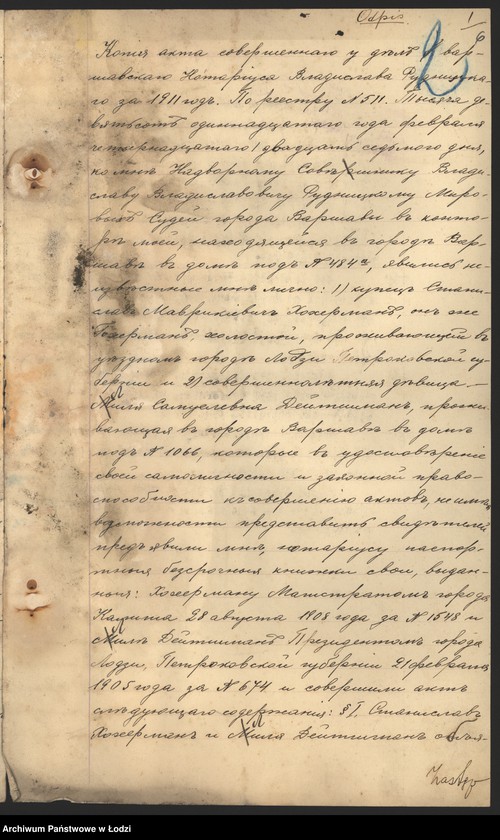 Odpis
1
6
2
Копiя акта совершеннаго у дѣлъ Вар-
шавскаго Нотарiуса Владислава Рудницка-
го за 1911 годъ. По реестру N 511. Тысяча де-
вятьсотъ одиннадцатаго года февраля
четырнадцатаго / двадцать седьмого дня,
ко мнѣ Надворному Совѣтнику Влади-
славу Владиславовичу Рудницкому Миро-
выхъ Судей города Варшавы въ конто-
рѣ моей, находящейся въ городѣ Вар-
шавѣ въ домѣ подъ N 484а, явились не-
извѣстные мнѣ лично: 1) купецъ Стани-
славъ Маврикiевичъ Хокерманъ, онъ же
Гохерманъ, холостой, проживающiй въ
уѣздномъ городѣ Лодзи Петроковской гу-
бернiи и 2) совершеннолѣтняя дѣвица -
Миля Самуелевна Дейтшманъ, прожи-
вающая въ городѣ Варшавѣ въ домѣ
подъ N 1066, которые въ удостовѣренiе
своей самоличности и законной право-
способности къ совершенiю актовъ, не имѣя
возможности представить свидѣтелей
предъявили мнѣ, нотарiусу паспор-
тныя безсрочныя книжки свои, выдан-
ныя: Хокерману Магистратомъ города
Калиша 28 августа 1908 года за N 1548 и
Милѣ Дейтшманъ Президентомъ города
Лодзи, Петроковской губернiи 21 февраля
1905 года за N 674 и совершили актъ
слѣдующаго содержанiя: § I. Станиславъ
Хокерманъ и Миля Дейтшманъ объя-
Archiwum Państwowe w Łodzi